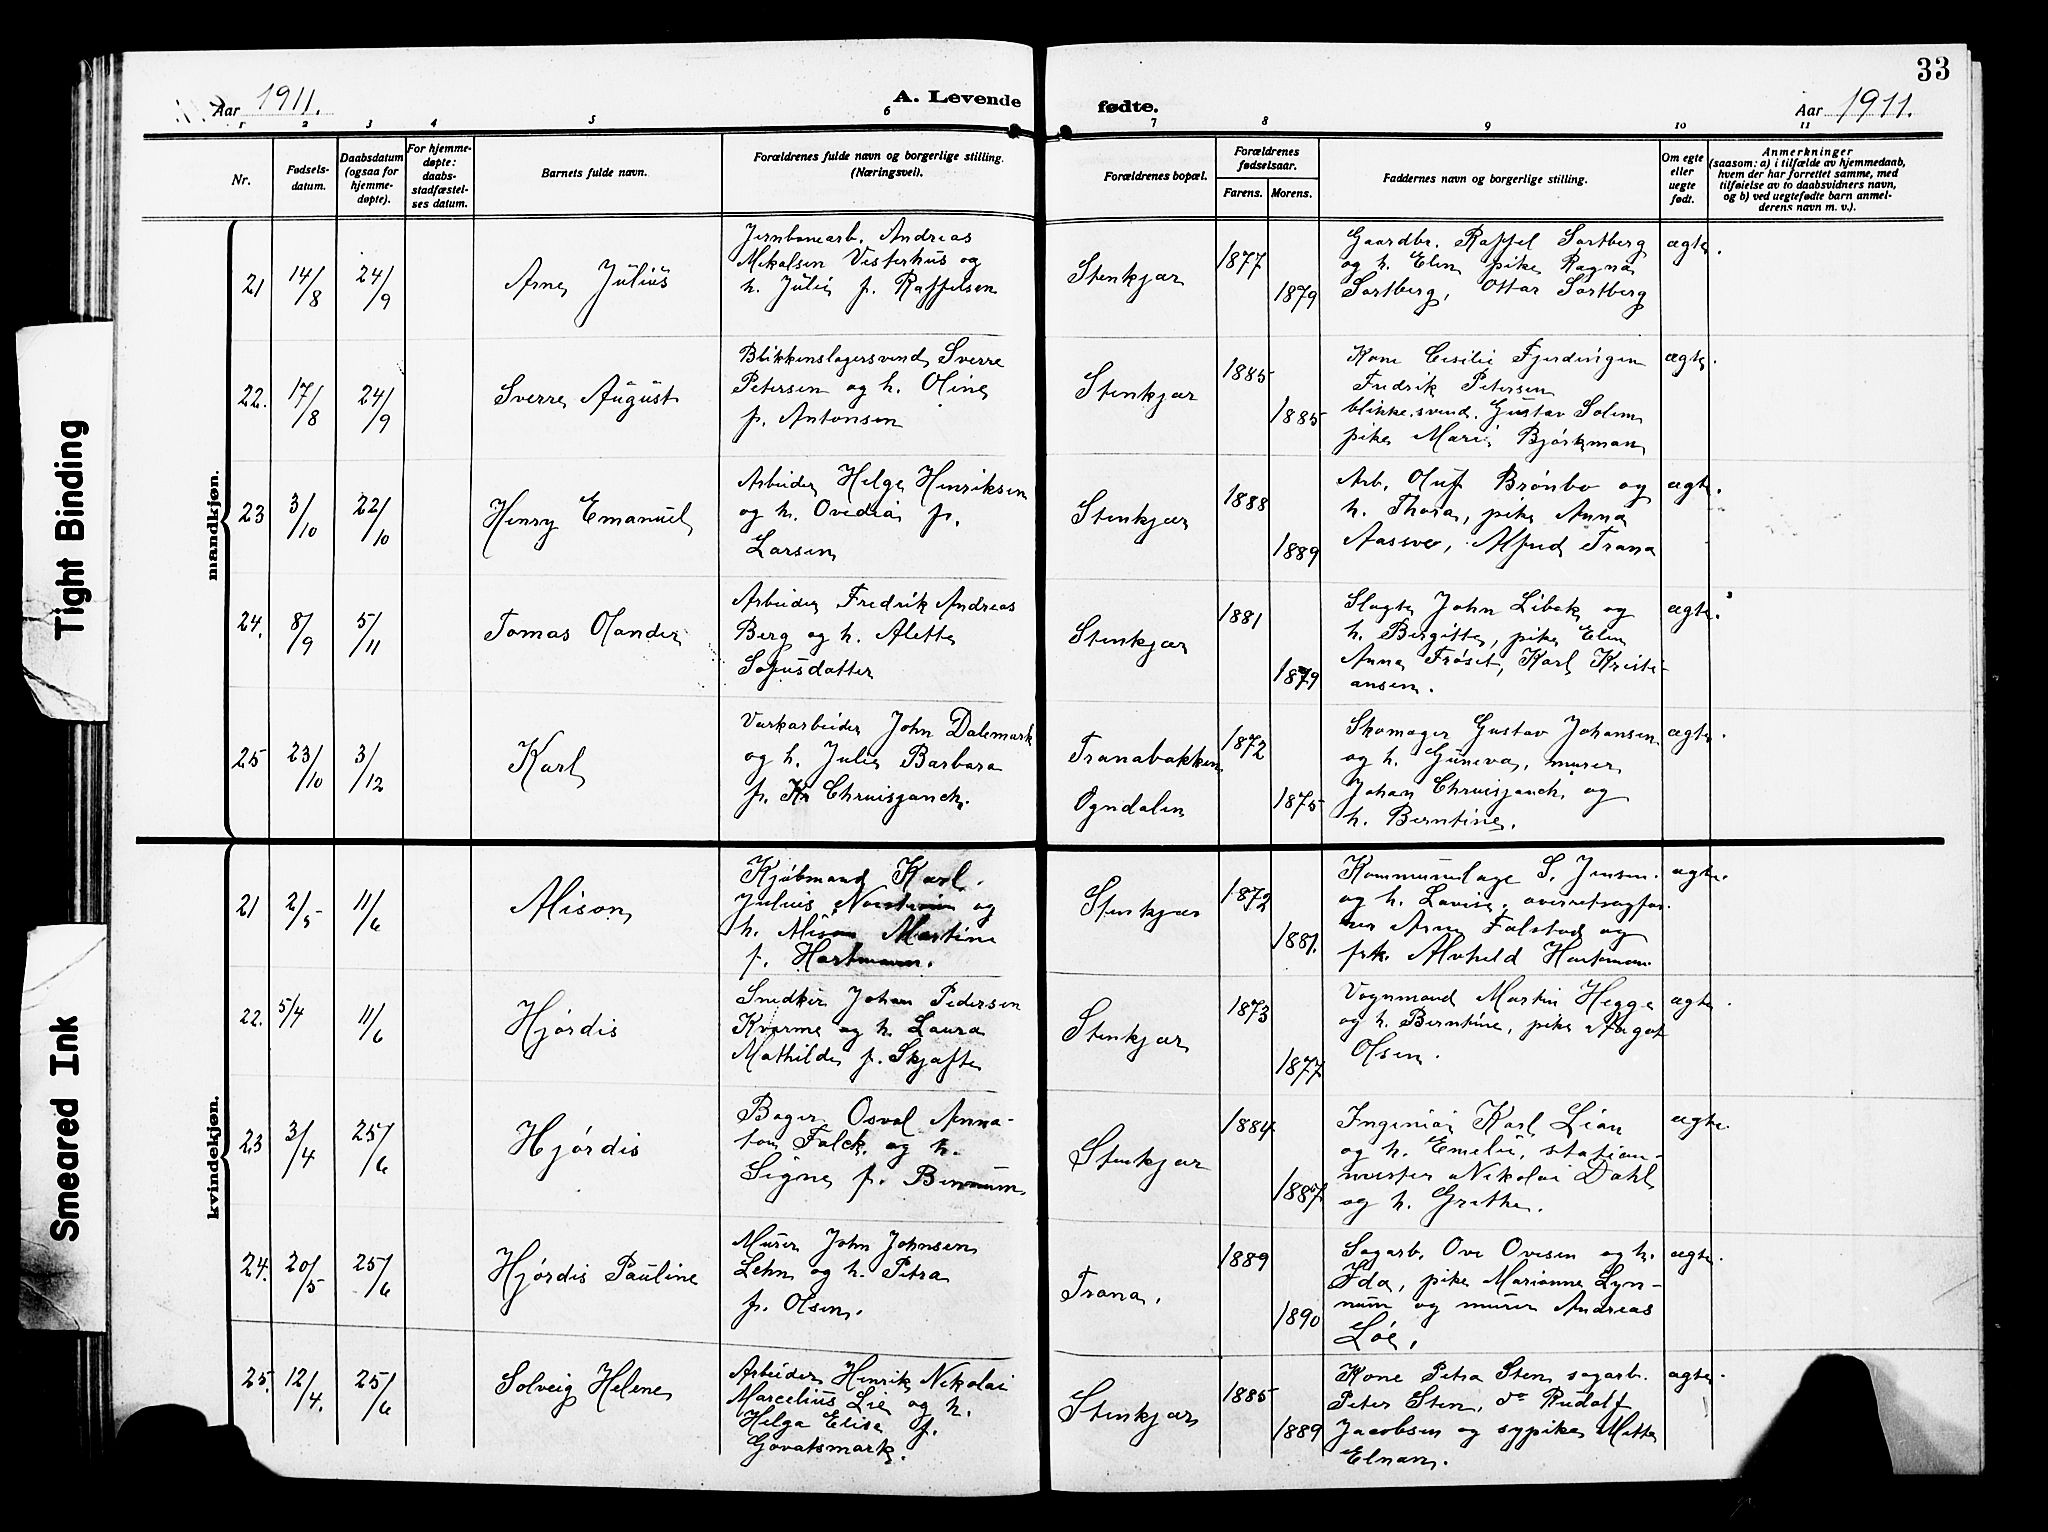 33
Aar 1911.
A. Levende fødte.
Aar 1911.
1 2 3 4 5 6 7 8 9 10 11
Nr.
Fødsels-
datum.
Daabsdatum
(ogsaa for
hjemme-
døpte).
For hjemme-
døpte:
daabs-
stadfæstel-
ses datum.
Barnets fulde navn.
Forældrenes fulde navn og borgerlige stilling.
(Næringsvei).
Forældrenes bopæl.
Forældrenes
fødselsaar.
Farens. Morens.
Faddernes navn og borgerlige stilling.
Om egte
eller
uegte
født.
Anmerkninger
(saasom: a) i tilfælde av hjemmedaab,
hvem der har forrettet samme, med
tilføielse av to daabsvidners navn,
og b) ved uegtefødte barn anmel-
derens navn m. v.).
mandkjøn.
21 14/8 24/9 Arne Julius
Jernbanearb. Andreas
Mikalsen Vesterhus og
h. Julie f. Raffelsen
Stenkjær
1877
1879
Gaardbr. Raffel Sortberg
og h. Elen pike Ragna
Sortberg, Ottar Sortberg
ægte.
22. 17/8 24/9 Sverre August
Blikkenslagersvend Sverre
Petersen og h. Oline
f. Antonsen
Stenkjær
1885
1885
Kone Cesilie Fjerdingen
Fredrik Petersen
blikke.svend. Gustav Solem
pike Marie Bjørkman
ægte.
23 3/10 22/10 Henry Emanuel
Arbeider Helge Henriksen
og h. Ovedia f.
Larsen
Stenkjær
1888
1889
Arb. Oluf Brønbo og
h. Thora, pike Anna
Aassve, Alfred Trana
ægte.
24. 8/9 5/11 Tomas Olander
Arbeider Fredrik Andreas
Berg og h. Alette
Sofusdatter
Stenkjær
1881
1879
Slagter John Libak og
h. Bergitte, pike Elen
Anna Frøset, Karl Kristi-
ansen.
ægte.
25 23/10 3/12 Karl
Verkarbeider John Dalemark
og h. Julie Barbara
f.
Tranabakken
Ogndalen
1872
1875
Skomager Gustav Johansen
og h. Guneva, murer
Johan og
h. Berntine.
ægte.
kvindekjøn.
21 2/5 11/6 Alison
Kjøbmand Karl
Julius og
h. Alison Martine
f. Hartmann.
Stenkjær
1872
1881.
S. Jensen.
og h. Lovise, overretsagfø-
rer Arne Falstad og
frk. Alvhild Hartmann
ægte.
22. 5/4 11/6 Hjørdis
Snedker Johan Pedersen
Kvarme og h. Laura
Mathilde f. Skjefte
Stenkjær
1873
1877
Vognmand Martin Hegge
og h. Berntine, pike Aagot
Olsen.
ægte.
23 3/4 25/6 Hjørdis
Bager Osval Anna-
ton Falck og h.
Signe f.
Stenkjær
1884
1887
Ingeniør Karl Lian
og h. Emelie, station-
mester Nikolai Dahl
og h. Grethe.
ægte.
24. 20/5 25/6 Hjørdis Pauline
Murer John Johnsen
Lehn og h. Petra
f. Olsen.
Trana.
1889
1890
Sagarb. Ove Ovesen og h.
Ida, pike Marianne Lyn-
num og murer Andreas
Løe,
ægte.
25. 12/4. 25/6 Solveig Helene
Arbeider Henrik Nikolai
Marcelius Lie og h.
Helga Elise f.
Govatsmark.
Stenkjær
1885
1889
Kone Petra Sten sagarb.
Peter Sten, do Rudolf
Jacobsen og sypike Mette
Elnan.
ægte.
Tight Binding
Smeared Ink